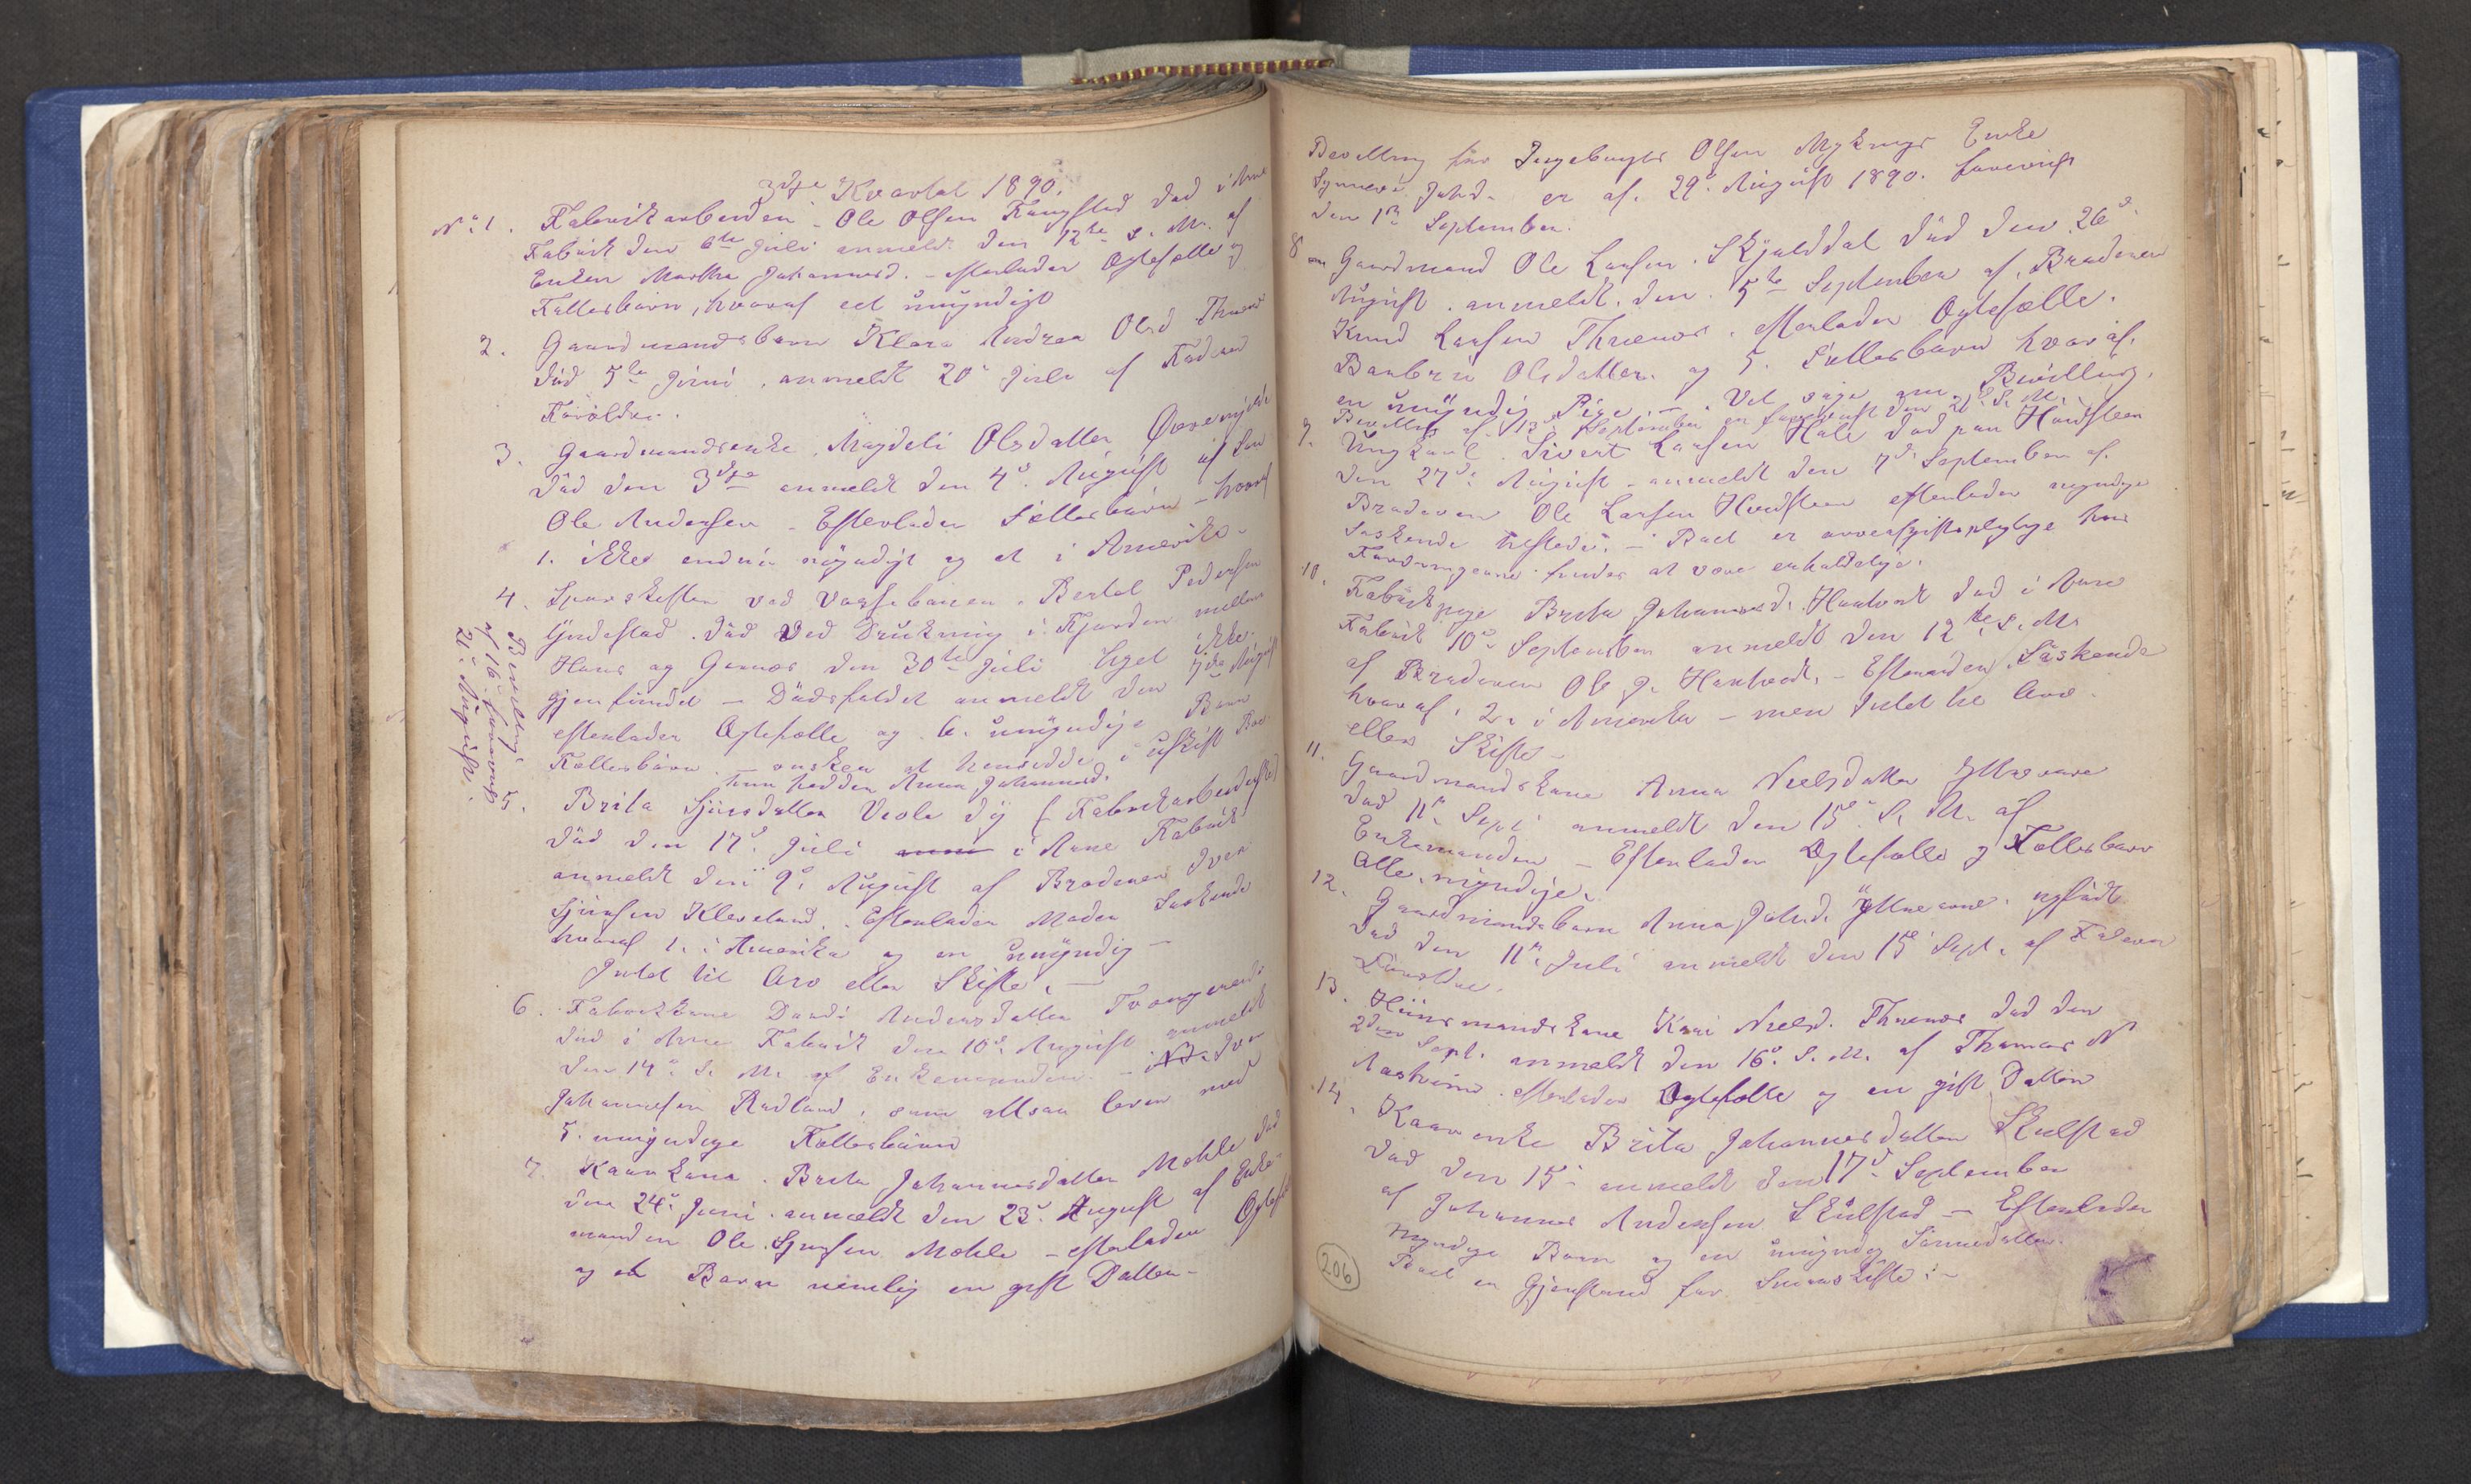 3dje Kvartal 1890.
No 1. Fabrikarbeider Ole Olsen Tangstad død i Arne
Fabrik den 6te Juli anmeldt den 12te s. M. af
Enken Martha Johannesd. - efterlader Ægtefælle og
Fællesbørn, hvoraf eet umyndigt
2. Gaardmandsbarn Klara Andrea Olsd
død 5te Juni, anmeldt 20 Juli af Faderen
Forældre.
3. Gaardmandsenke, Magdeli Olsdatter
død den 3dje anmeldt den 4de August af Søn
Ole Andersen - Efterlader Fællesbørn - hvoraf
1. ikke endnu myndigt og et i Amerika -
4. ved Vossebanen, Bertel Pedersen
død ved Drukning i Fjorden mellem
Hans og Garnæs den 30te Juli Liget ikke
gjenfundet - Dødsfaldet anmeldt den 7de August
efterlader Ægtefælle og 6. umyndige Børn
Fællesbørn. - ønsker at hensidde i uskift Boe
hun hedder Anna Johannesd.
Bevilling
af 16. forevist
21. August.
5. Brita Sjursdatter Veole
død den 17de Juli i Arne Fabrik
anmeldt den 9de August af Broderen Iver
Sjursen Kleveland. Efterlader Moder Søskende
hvoraf 1. i Amerika og en umyndig -
Intet til Arv eller Skifte. -
6. Fabrikkone Andersdatter
død i Arne Fabrik den 10de August anmeldt
den 14de s. M. af Enkemanden - Iver
Johannesen Rødland, som altsaa lever med
5. umyndige Fællesbørn
7. Kaarkone. Brita Johannesdatter Mæhle død
den 24de Juni anmeldt den 23de August af Enke-
manden Ole Sjursen Mæhle - efterlader Ægtefælle
og et Barn nemlig en gift Datter -
Bevilling for Ingebrigt Olsen Myking Enke
Synneve Johsd. er af 29de August 1890. forevist
den 1ste September.
8 Gaardmand Ole Larsen Skjølddal død den 26de
August anmeldt den 5te September af Broderen
Knud Larsen Thunes. efterlader Ægtefælle.
Olsdatter. og 5. Fællesbørn hvoraf
en umyndig Pige - Vil søge om Bevilling.
Bevilling af 13 September er forevist den 21de s. M.
9. Ungkarl. Sivert Larsen Hole død paa Haudsteen
den 27de August - anmeldt den 7de September af
Broderen Ole Larsen Haudsteen efterlader myndige
Søskende tilstede. - Boet er arveafgiftspligtige hvis
Fordringerne findes at være erholdelige.
10. Fabrikpige Brita Johannesd. Hantveit død i Arne
Fabrik 10de September anmeldt den 12te s. M.
af Broderen Ole J. Hantvedt. - Søskende
hvoraf 2. i Amerika - men Intet til Arv
eller Skifte -
11. Gaardmandskone Anna Nielsdatter Yttre Arne
død 11te Sept. anmeldt den 15de s. M. af
Enkemanden - Efterlader Ægtefælle og Fællesbørn
Alle myndige.
12. Gaardmandsbarn Anna Johsd. Yttre Arne nyfødt
død den 11te Juli anmeldt den 15de Sept. af Faderen
Forældre.
13. Huusmandskone Kari Nielsd. Thunes død den
2den Sept. anmeldt den 16de s. M. af Thomas N
efterlader Ægtefælle og en gift Datter
14. Kaarenke Brita Johannesdatter Skulstad
død den 15de anmeldt den 17de September
af Johannes Andersen Skulstad - Efterlader
myndige Børn og en umyndig Sønnedatter.
Boet er Gjenstand for Samskifte. -
206